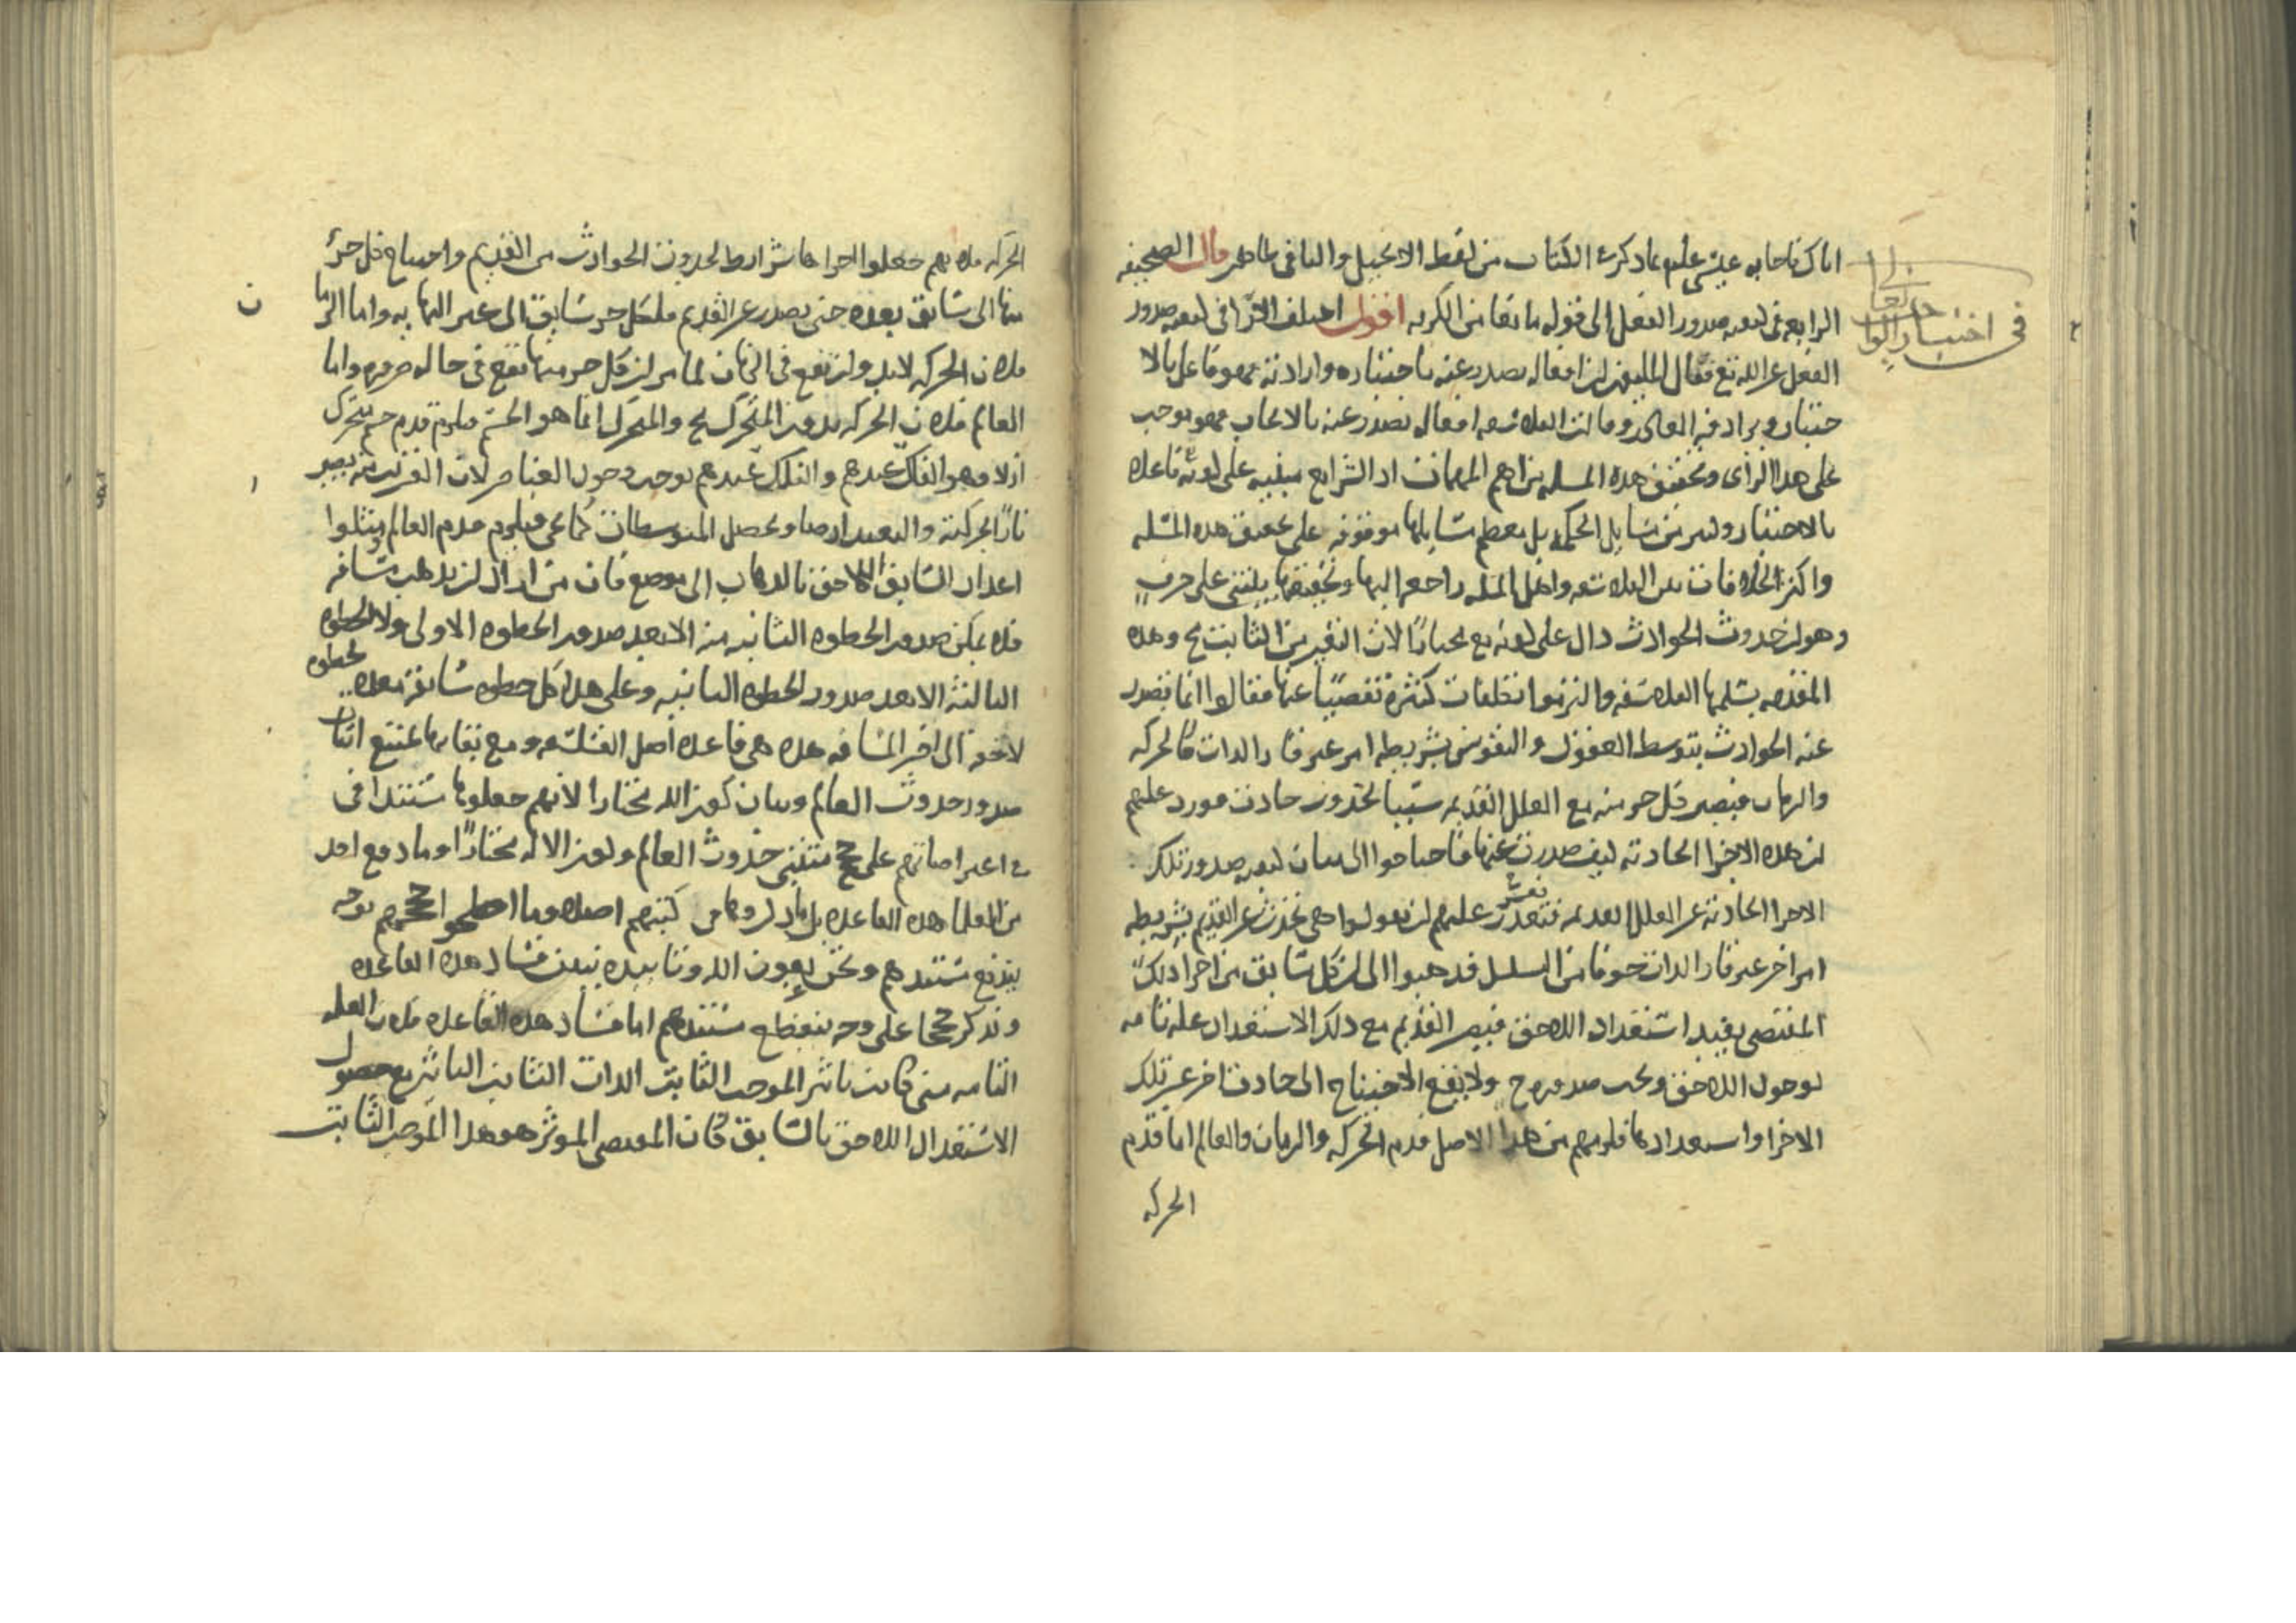 في اختيار الواجب تعالى
اياك فاجابه عيسى عليه بما ذكره في الكتاب من لفظ الانجيل والباقي ظاهر قال الصحيفه
الرابعه في كيفيه صدور الفعل الى قوله ما بقا من الكربه اقول اختلف القرا في كيفيه صدور
الفعل عن الله تع فقال المليون ان افعاله تصدر عنه باختياره وارادته فهو فاعل بالا
ختيار ويرادفه القادر وقالت الفلاسفه افعاله تصدر عنه بالايجاب فهو موجب
على هذا الراى وتحقيق هذه المسله من اهم المهمات اد الشرايع مبنيه على كونه فاعلا
بالاختيار وكثير من مسايل الحكمه بل معظم مسايلها موقوفه على تحقيق هذه المسله
واكثر الخلافات بين الفلاسفه واهل المله راجعه اليها وتحقيقها يبتنى على حرف
وهو ان حدوث الحوادث دال على كونه تع مختارا لان التغير من الثابت مح وهذه
المقدمه يسلمها الفلاسفه والتزموا تكلفات كثيرة تفصيا عنها فقالوا انما تصدر
عنه الحوادث بتوسط العقول والنفوس بشريطه امر غير قار الدات كالحركه
والزمان فيصير كل جز منه مع العلل القديمه سببا لحدوث حادث فورد عليهم
ان هذه الاجزا الحادثه كيف صدرت عنها فاحتاجوا الى بيان كيفيه صدور تلك
الاجزا الحادثه عن العلل القديمه فتعذر عليهم ان يقولوا هى تحدث عن القديم بشريطه
امر اخر غير قار الدات خوفا من التسلسل فدهبوا الى ان كل سابق من اجزا دلك
المقتضى يفيد استعداد اللاحق فيصير القديم مع دلك الاستعداد عله تامه
لوجود اللاحق ويجب صدوره ح ولا يقع الاحتياج الى حادث اخر غير تلك
الاجزا واستعدادها فلزمهم من هذا الاصل قدم الحركه والزمان والعالم اما قدم
الحركه
الحركه فلانهم جعلوا اجزاها شرايط لحدوث الحوادث من القديم واحتياج كل جزء
منها الى سابق يعده حتى يصدر عن القديم فلكل جز سابق الى غير النهايه واما الزما
ن
فلان الحركه لابد وان تقع في الزمان لما مر ان كل جز منها تقع في حاله ضروره واما
العالم فلان الحركه بدون المتحرك مح والمتحرك انما هو الجسم فيلزم قدم جسم يتحرك
ازلا وهو الفلك عندهم والفلك عندهم يوجب وجود العناصر لان القريب منه يصير
نارا لحركته والبعيد ارضا وتحصل المتوسطات كما هى فيلزم قدم العالم ومثلوا
اعداد السابق اللاحق بالدهاب الى موضع فان من اراد ان يدهب مسافه
فلا يمكن صدور الخطوه الثانيه منه الا بعد صدور الخطوه الاولى ولا الخطوه
الثالثه الا بعد صدور الخطوه الثانيه وعلى هذا كل خطوه سابقة معده لخطوه
لاحقه الى اخر المسافه هذه هى قاعده اصل الفلسفه ومع بقايها يمتنع اثبات
صدور حدوث العالم وبيان كون الله مختارا لانهم جعلوها مستندا في
اعتراضاتهم على حجج مثبتى حدوث العالم وكون الاله مختارا وما دفع احد
من العلما هذه القاعده بل ما دكروها في كتبهم اصلا وما اصلحوا حججهم بوجه
يندفع مستندهم ونحن بعون الله وتاييده نبين فساد هذه القاعده
وندكر حججا على وجه ينقطع مستندهم اما فساد هذه القاعده فلان العله
التامه متى كانت تاثير الموجب الثابت الدات الثابت التاثير مع حصول
الاستعداد اللاحق بالسابق كان المقتضى الموثر هو هذا الموجب الثابت